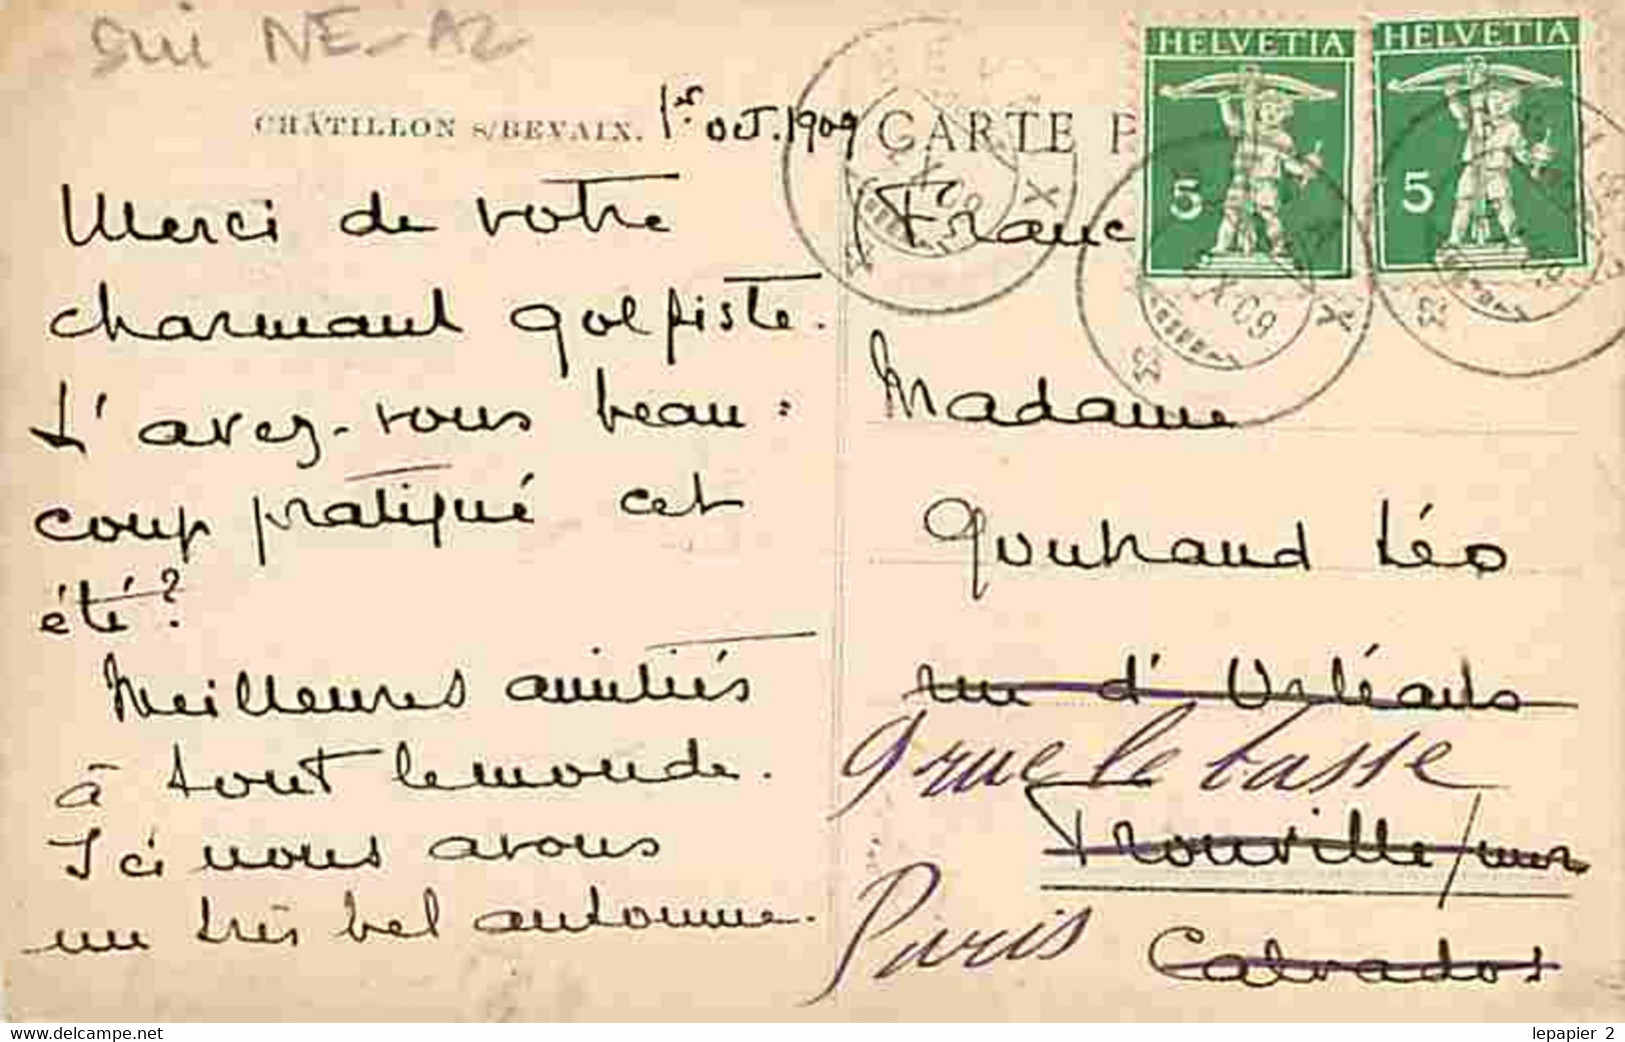 sui NE-A2
CHÂTILLON s/BEVAIX. 1er oct. 1909
CARTE P
HELVETIA
5
HELVETIA
5
Merci de votre
charmant golfiste.
L'avez-vous beau=
coup pratiqué cet
été?
Meilleures amitiés
à tout le monde.
Ici nous avons
un très bel automne.
Franc
Madame
Gouhaud Léo
rue d'Orléans
9 rue le tasse
Trouville s/mer
Paris
Calvados
lepapier 2
www.delcampe.net